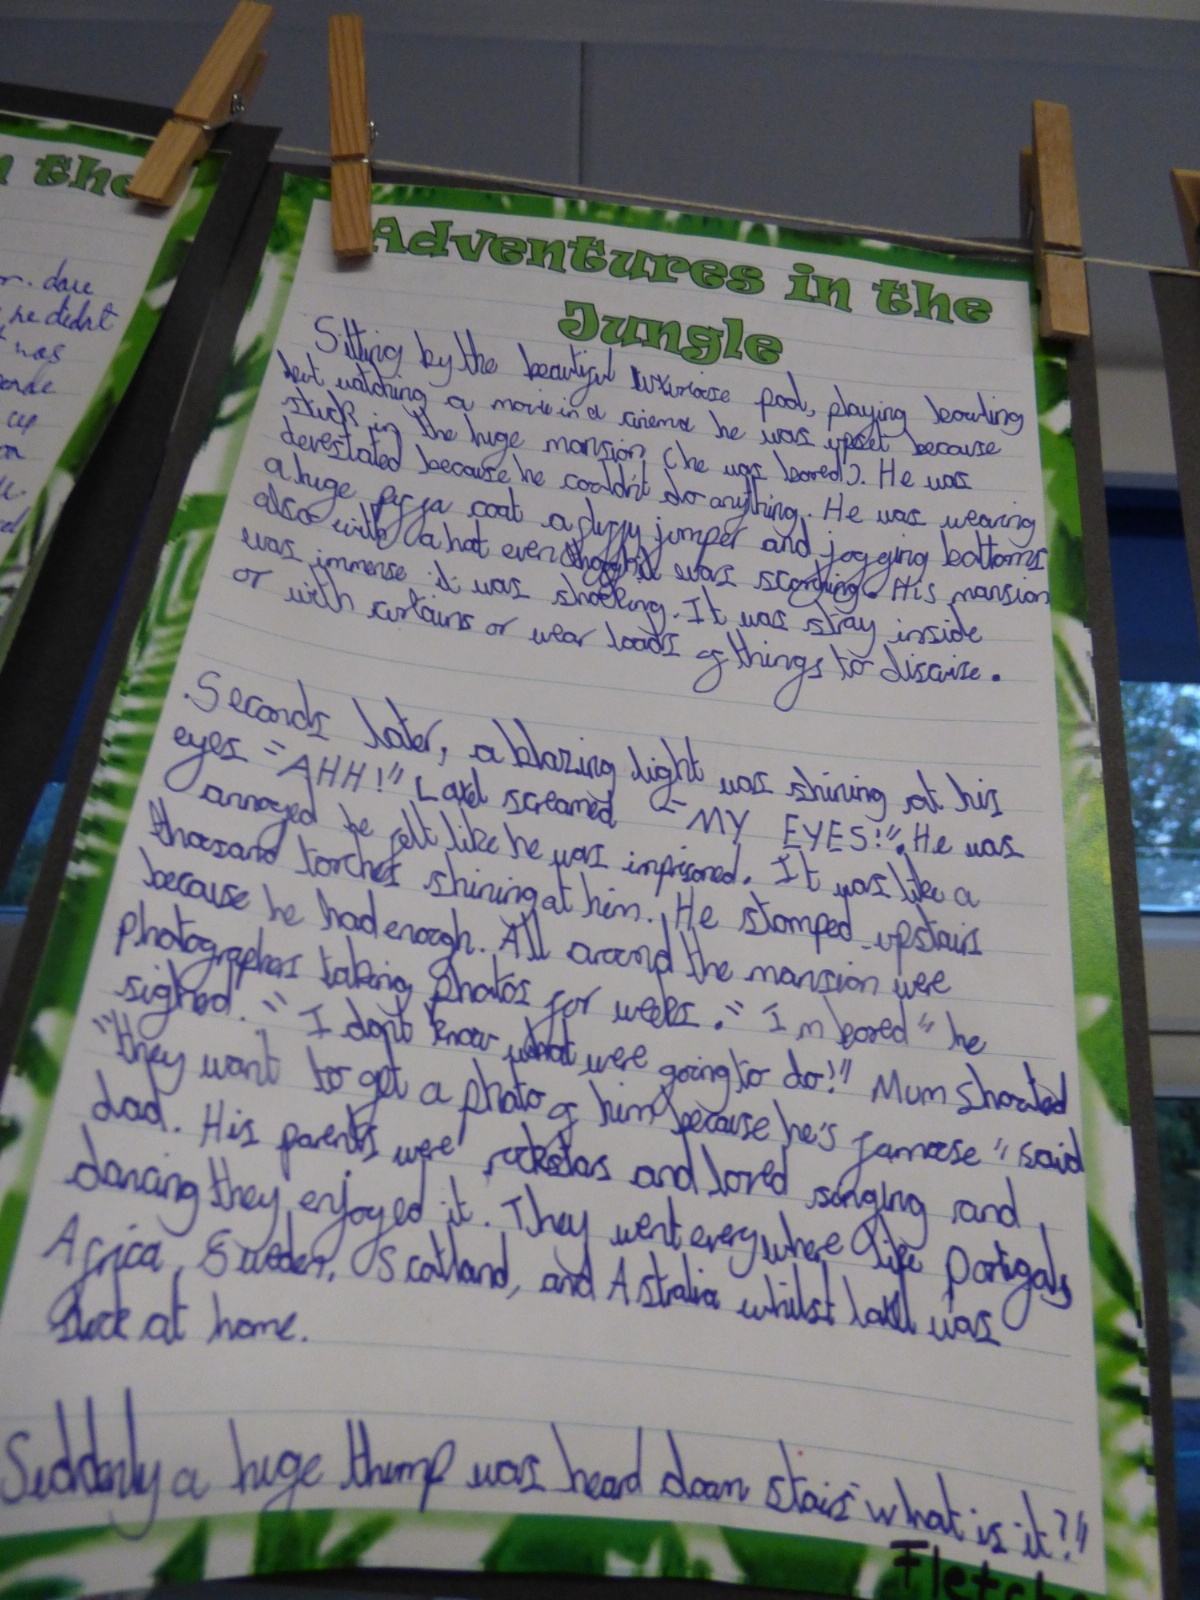 n the
r. dare
he didnt
was
up
Adventures in the
Jungle
Sitting by the beautiful luxuriose pool, playing bowling
but watching a movie in a cinema he was upset because
stuck in the huge mansion (he was bored). He was
devestated because he couldn't do anything. He was wearing
a huge puffa coat a fluffy jumper and jogging bottoms
also with a hat even though it was scorching. His mansion
was immense it was shocking. It was stay inside
or with curtains or wear loads of things to discuise.
Seconds later, a blazing light was shining at his
eyes "AHH!" Laxel screamed "MY EYES!". He was
annoyed he felt like he was imprisoned. It was like a
thousand torches shining at him. He stomped upstairs
because he had enough. All around the mansion were
photographers taking photos for weeks. "I'm bored" he
sighed. "I don't know what were going to do!" Mum shouted
"they want to get a photo of him because he's famouse" said
dad. His parents were rockstars and loved singing and
dancing they enjoyed it. They went everywhere like Portigals,
Africa, Sweden, Scotland, and Astralia whilst laxel was
stuck at home.
Suddenly a huge thump was heard down stairs "what is it?"